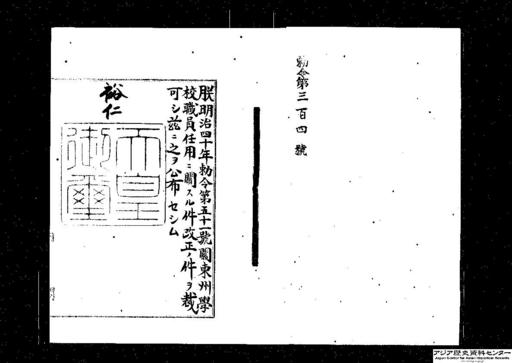 勅令第三百四號
朕明治四十年勅令第五十一號關東州學
校職員任用ニ關スル件改正ノ件ヲ裁
可シ茲ニ之ヲ公布セシム
裕仁
天皇
御璽
アジア歴史資料センター
Japan Center for Asian Historical Records